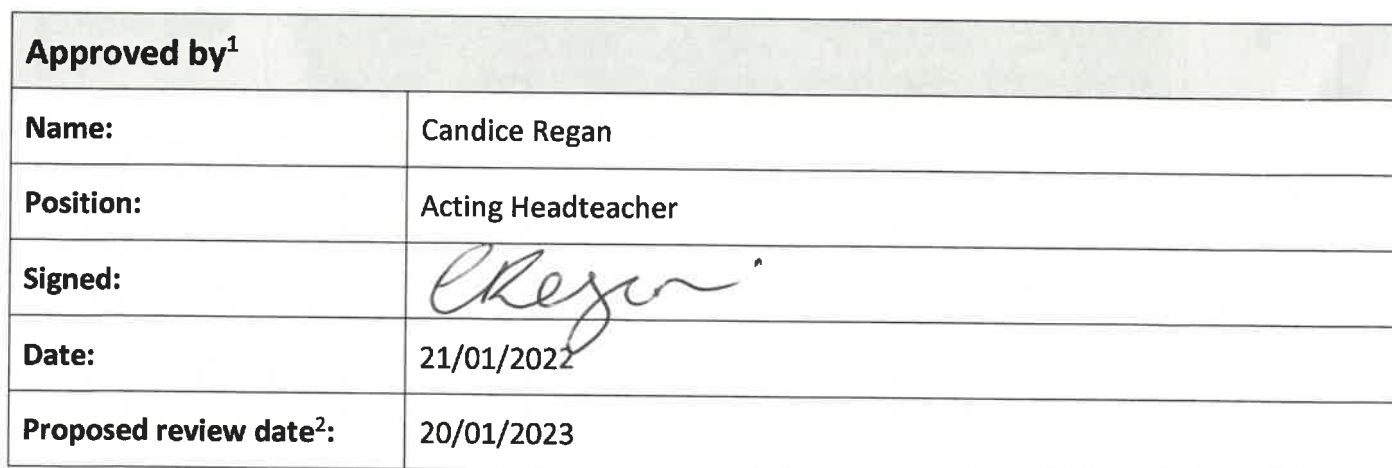 Approved by¹
Name: Candice Regan
Position: Acting Headteacher
Signed: CRegan
Date: 21/01/2022
Proposed review date²: 20/01/2023